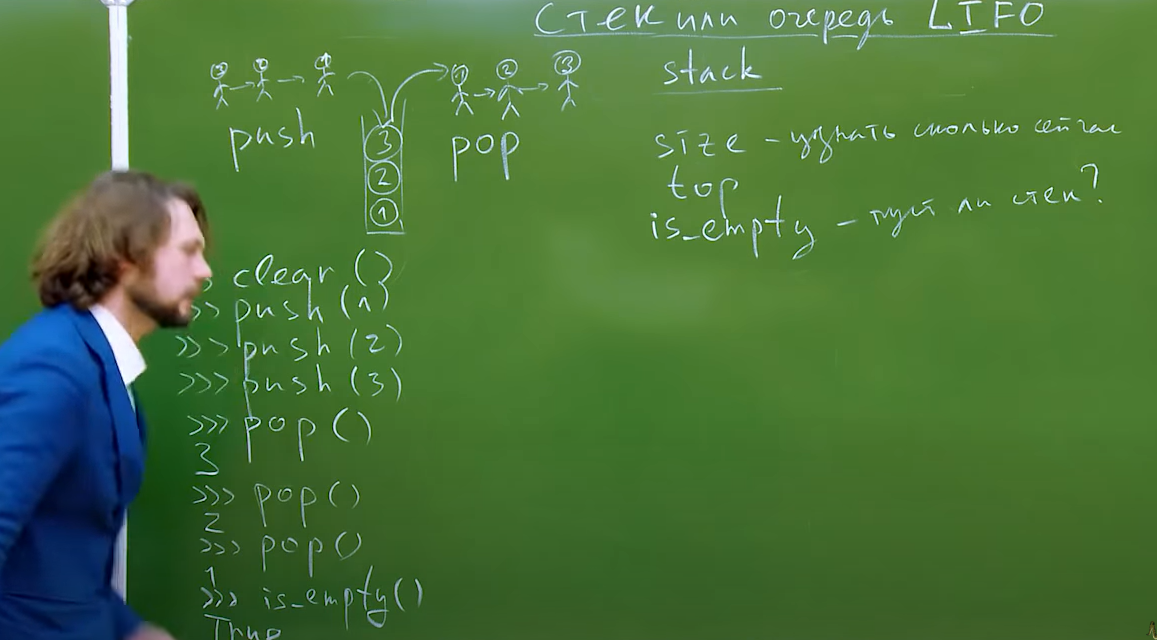 Стек или очередь LIFO
stack
push
pop
3
2
1
1
2
3
size - узнать сколько сейчас
top
is_empty - пуст ли стек?
clear ()
>> push (1)
>>> push (2)
>>> push (3)
>>> pop ()
3
>>> pop ()
2
>>> pop ()
1
>>> is_empty ()
True